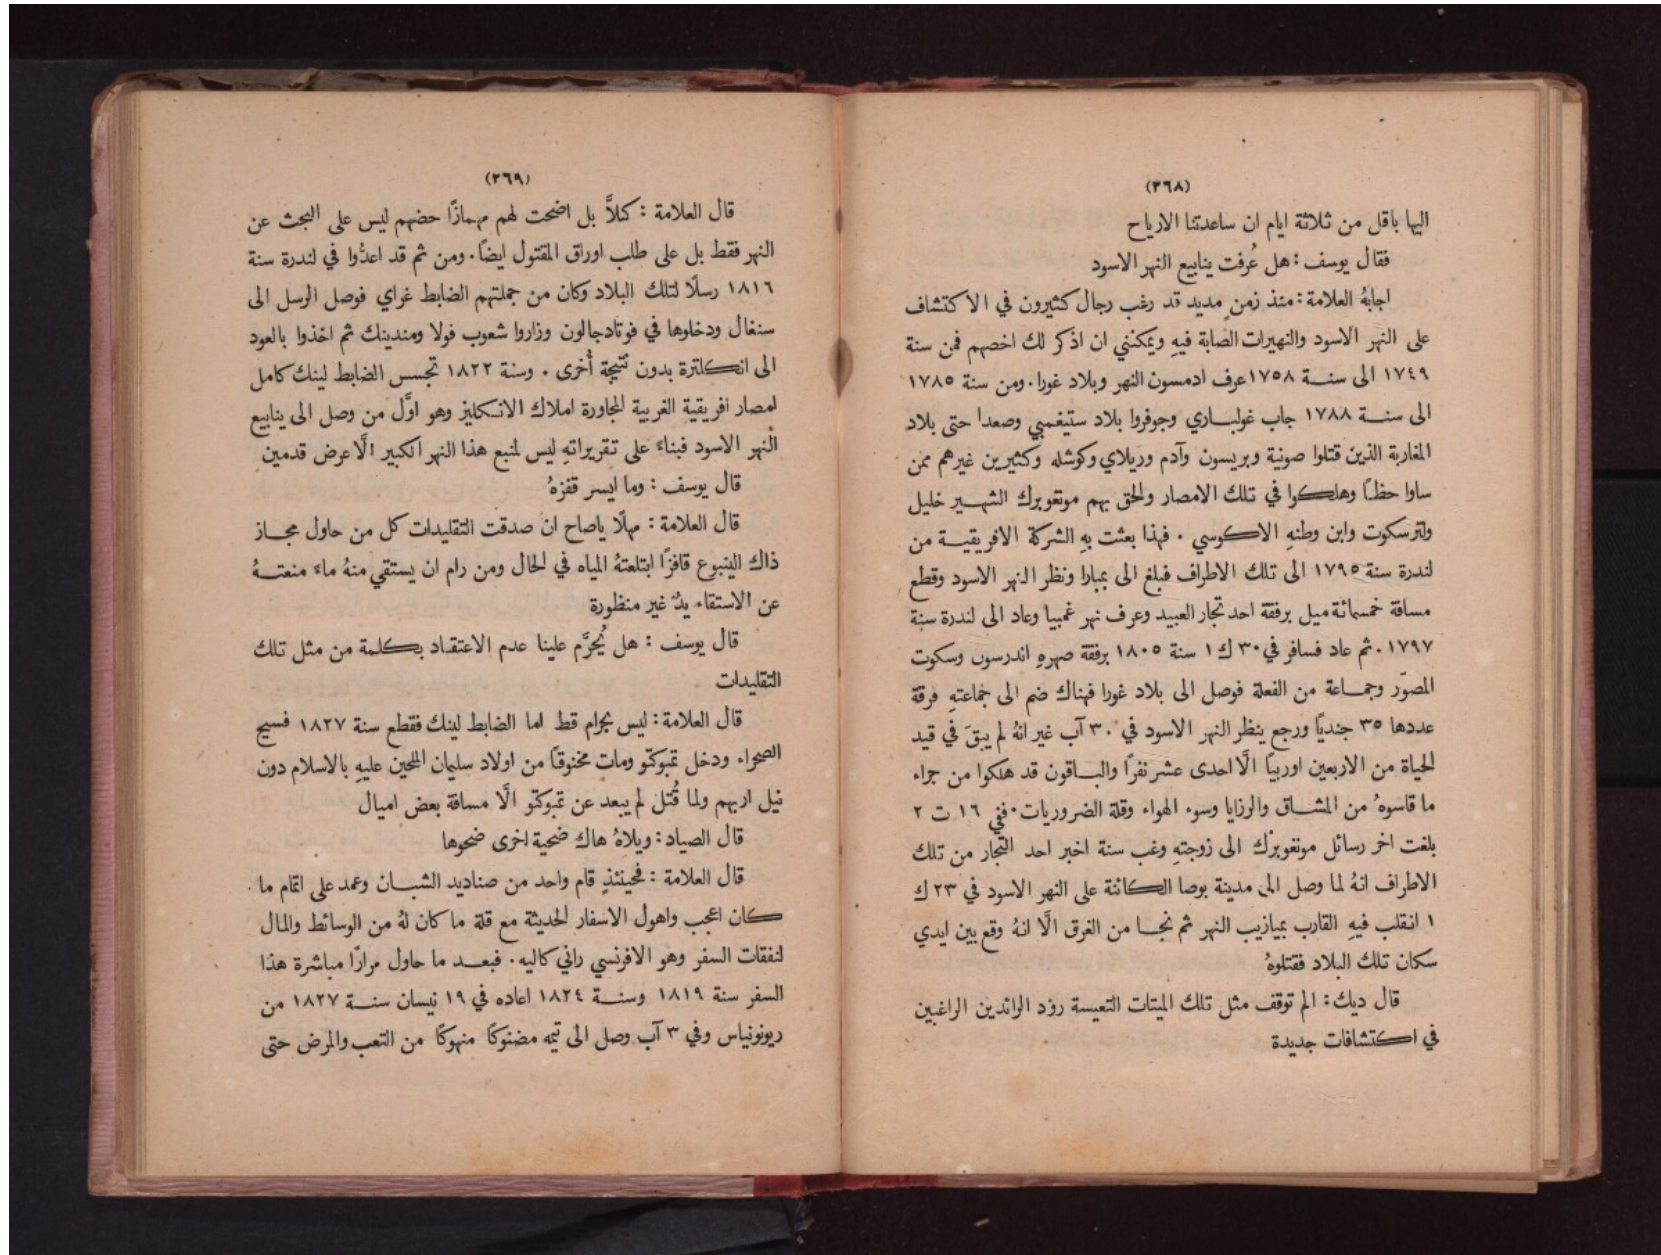 (٣٦٨)
اليها باقل من ثلاثة ايام ان ساعدتنا الارياح
فقال يوسف : هل عُرفت ينابيع النهر الاسود
اجابهُ العلامة : منذ زمنٍ مديد قد رغب رجال كثيرون في الاكتشاف
على النهر الاسود والنهيرات الصابة فيهِ ويمكنني ان اذكر لك اخصهم فمن سنة
١٧٤٩ الى سنــة ١٧٥٨ عرف ادمسون النهر وبلاد غورا. ومن سنة ١٧٨٥
الى سنــة ١٧٨٨ جاب غولبــاري وجوفروا بلاد ستيغمبي وصعدا حتى بلاد
المغاربة الذين قتلوا صونية وبريسون وآدم وريلاي وكوشله وكثيرين غيرهم ممن
ساوا حظـاً وهلكوا في تلك الامصار والحق بهم مونغوبرك الشهــير خليل
ولترسكوت وابن وطنهِ الاكوسي . فهذا بعثت بهِ الشركة الافريقيــة من
لندرة سنة ١٧٩٥ الى تلك الاطراف فبلغ الى بمبارا ونظر النهر الاسود وقطع
مسافة خمسمائة ميل برفقة احد تجار العبيد وعرف نهر غمبيا وعاد الى لندرة سنة
١٧٩٧ . ثم عاد فسافر في ٣٠ ك ١ سنة ١٨٠٥ برفقة صهرهِ اندرسون وسكوت
المصوّر وجمــاعة من الفعلة فوصل الى بلاد غورا فهناك ضم الى جماعتهِ فرقة
عددها ٣٥ جنديًا ورجع ينظر النهر الاسود في ٣٠ آب غير انهُ لم يبقَ في قيد
الحياة من الاربعين اوربيًا الَّا احدى عشر نفرًا والبــاقون قد هلكوا من جراء
ما قاسوهُ من المشــاق والرزايا وسوء الهواء وقلة الضروريات . ففي ١٦ ت ٢
بلغت اخر رسائل مونغوبرك الى زوجتهِ وغب سنة اخبر احد التجار من تلك
الاطراف انهُ لما وصل الى مدينة بوصا الكائنة على النهر الاسود في ٢٣ ك
١ انقلب فيهِ القارب بميازيب النهر ثم نجــا من الغرق الَّا انهُ وقع بين ايدي
سكان تلك البلاد فقتلوهُ
قال ديك : الم توقف مثل تلك الميتات التعيسة رؤد الرائدين الراغبين
في اكتشافات جديدة
(٣٦٩)
قال العلامة : كلَّا بل اضحت لهم مهمازًا حضهم ليس على البحث عن
النهر فقط بل على طلب اوراق المقتول ايضًا . ومن ثم قد اعدُّوا في لندرة سنة
١٨١٦ رسلًا لتلك البلاد وكان من جملتهم الضابط غراي فوصل الرسل الى
سنغال ودخلوها في فوتادجالون وزاروا شعوب فولا ومندينك ثم اخذوا بالعود
الى انكلترة بدون نتيجة أُخرى . وسنة ١٨٢٢ تجسس الضابط لينك كامل
امصار افريقية الغربية المجاورة املاك الانكليز وهو اوَّل من وصل الى ينابيع
النهر الاسود فبناءً على تقريراتهِ ليس لمنبع هذا النهر الكبير الَّا عرض قدمين
قال يوسف : وما ايسر قفزهُ
قال العلامة : مهلًا ياصاح ان صدقت التقليدات كل من حاول مجــاز
ذاك الينبوع قافزًا ابتلعتهُ المياه في الحال ومن رام ان يستقي منهُ ماءً منعتــهُ
عن الاستقاء يدٌ غير منظورة
قال يوسف : هل يُحرَّم علينا عدم الاعتقاد بكلمة من مثل تلك
التقليدات
قال العلامة : ليس بحرام قط اما الضابط لينك فقطع سنة ١٨٢٧ فسيح
الصحراء ودخل تمبوكتو ومات مخنوقًا من اولاد سليمان الملحين عليهِ بالاسلام دون
نيل اربهم ولما قُتل لم يبعد عن تمبوكتو الَّا مسافة بعض اميال
قال الصياد : ويلاهُ هاك ضحية اخرى ضحوها
قال العلامة : فحينئذٍ قام واحد من صناديد الشبــان وعمد على اتمام ما
كان اعجب واهول الاسفار الحديثة مع قلة ما كان لهُ من الوسائط والمال
لنفقات السفر وهو الافرنسي راني كاليه . فبعــد ما حاول مرارًا مباشرة هذا
السفر سنة ١٨١٩ وسنــة ١٨٢٤ اعاده في ١٩ نيسان سنــة ١٨٢٧ من
ريونونياس وفي ٣ آب وصل الى تيمه مضنوكًا منهوكًا من التعب والمرض حتى